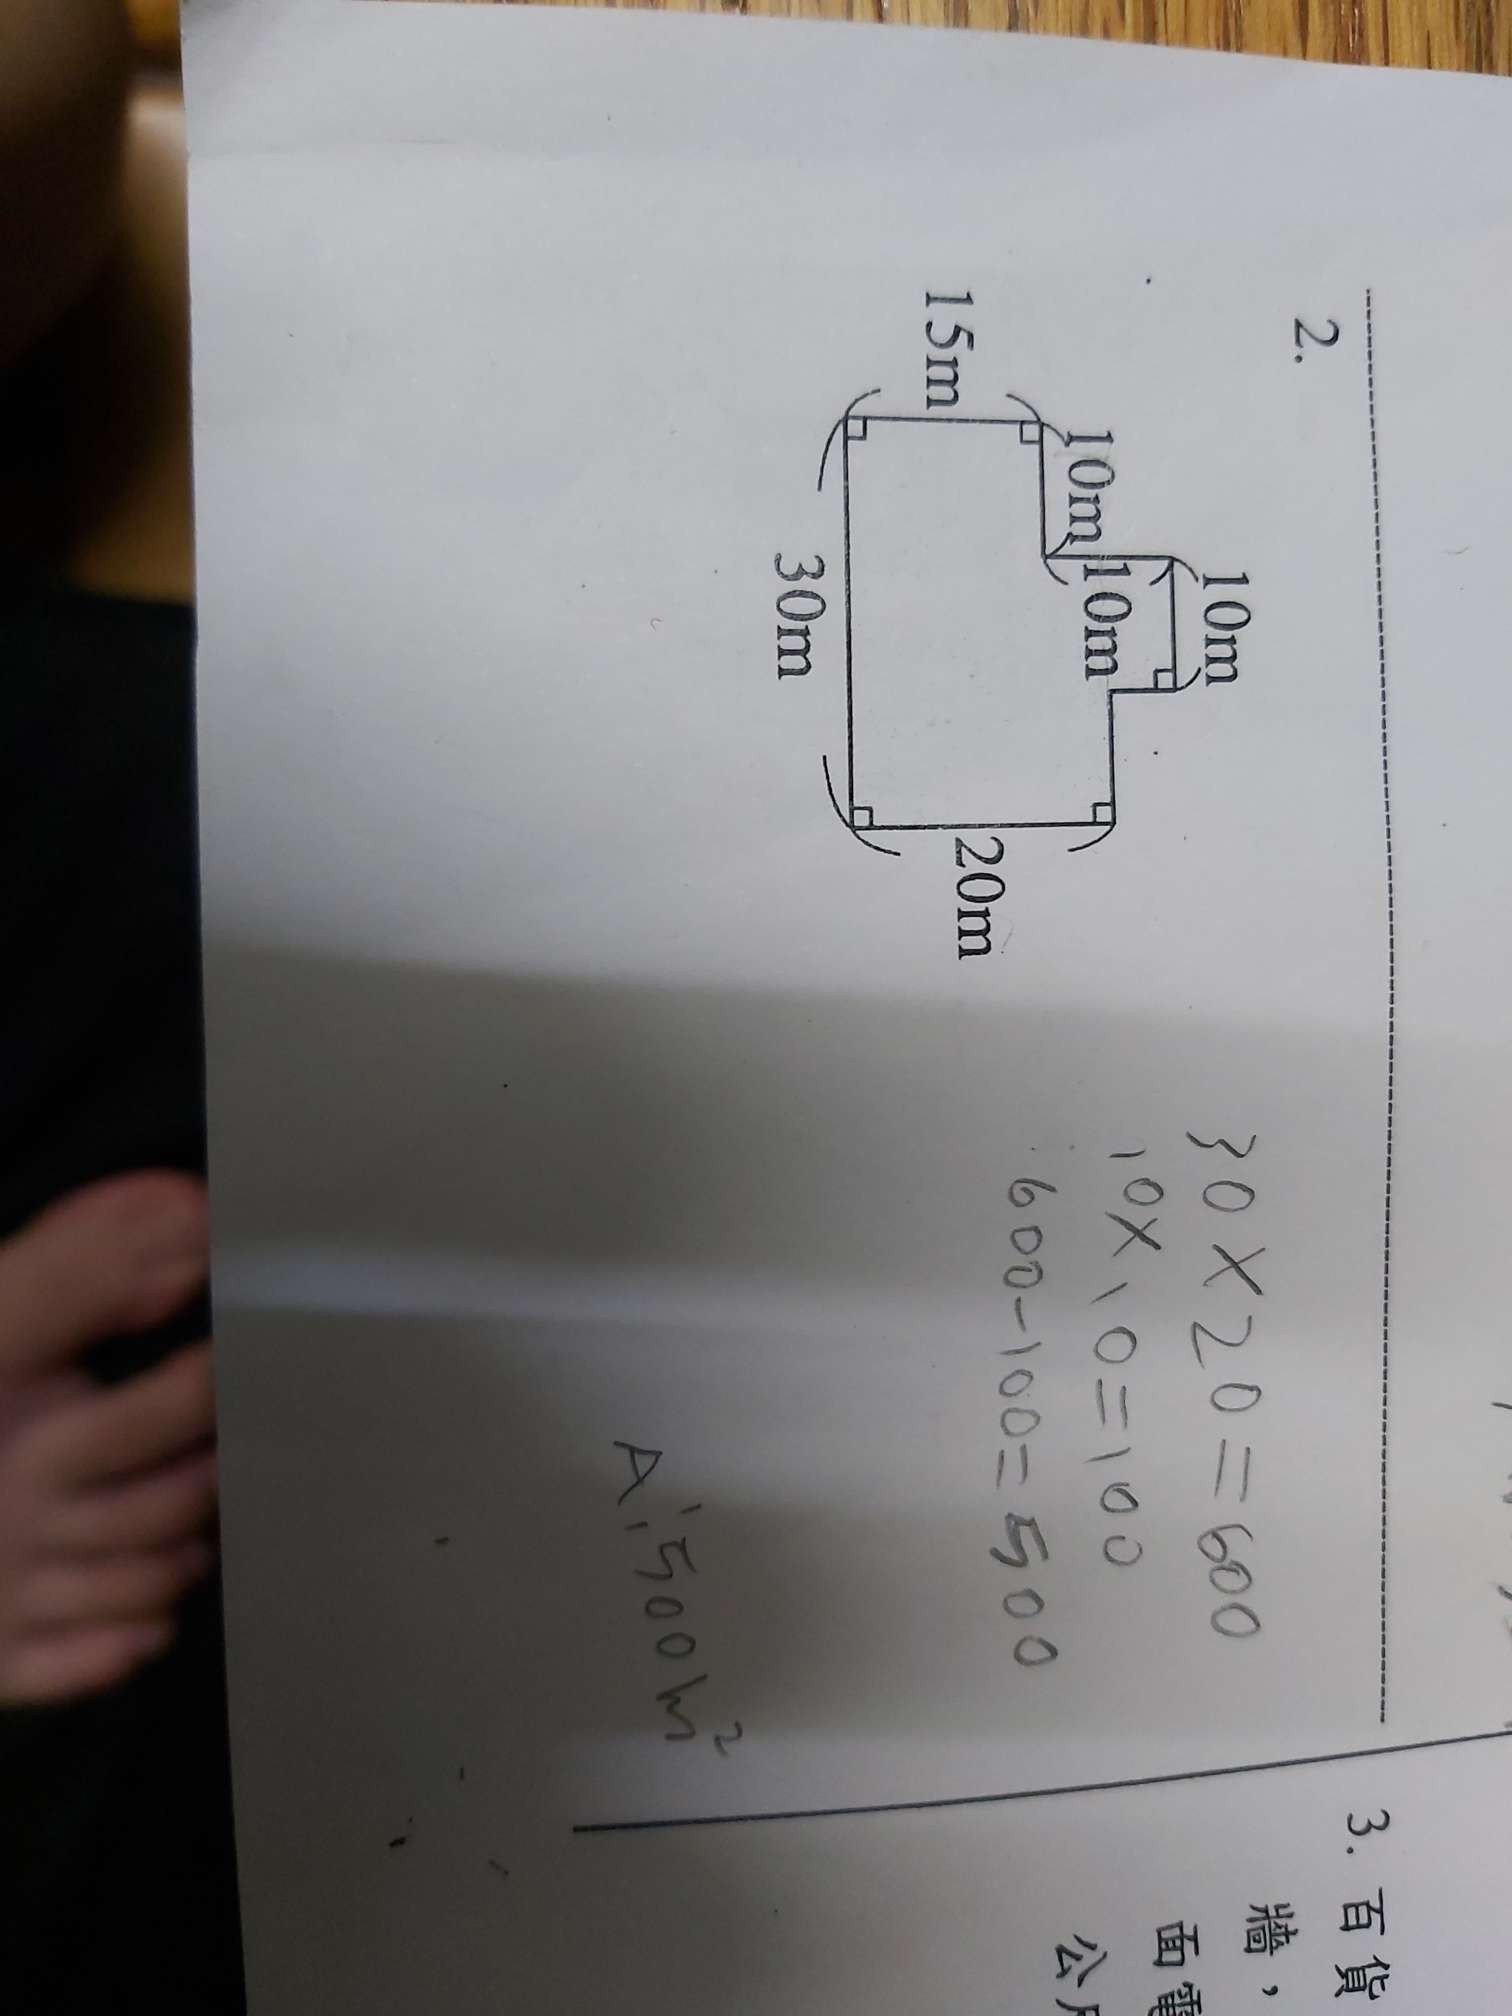 2.
10m
10m
10m
15m
20m
30m
30×20=600
10×10=100
600-100=500
A:500m²
3. 百貨
牆，
面電
公